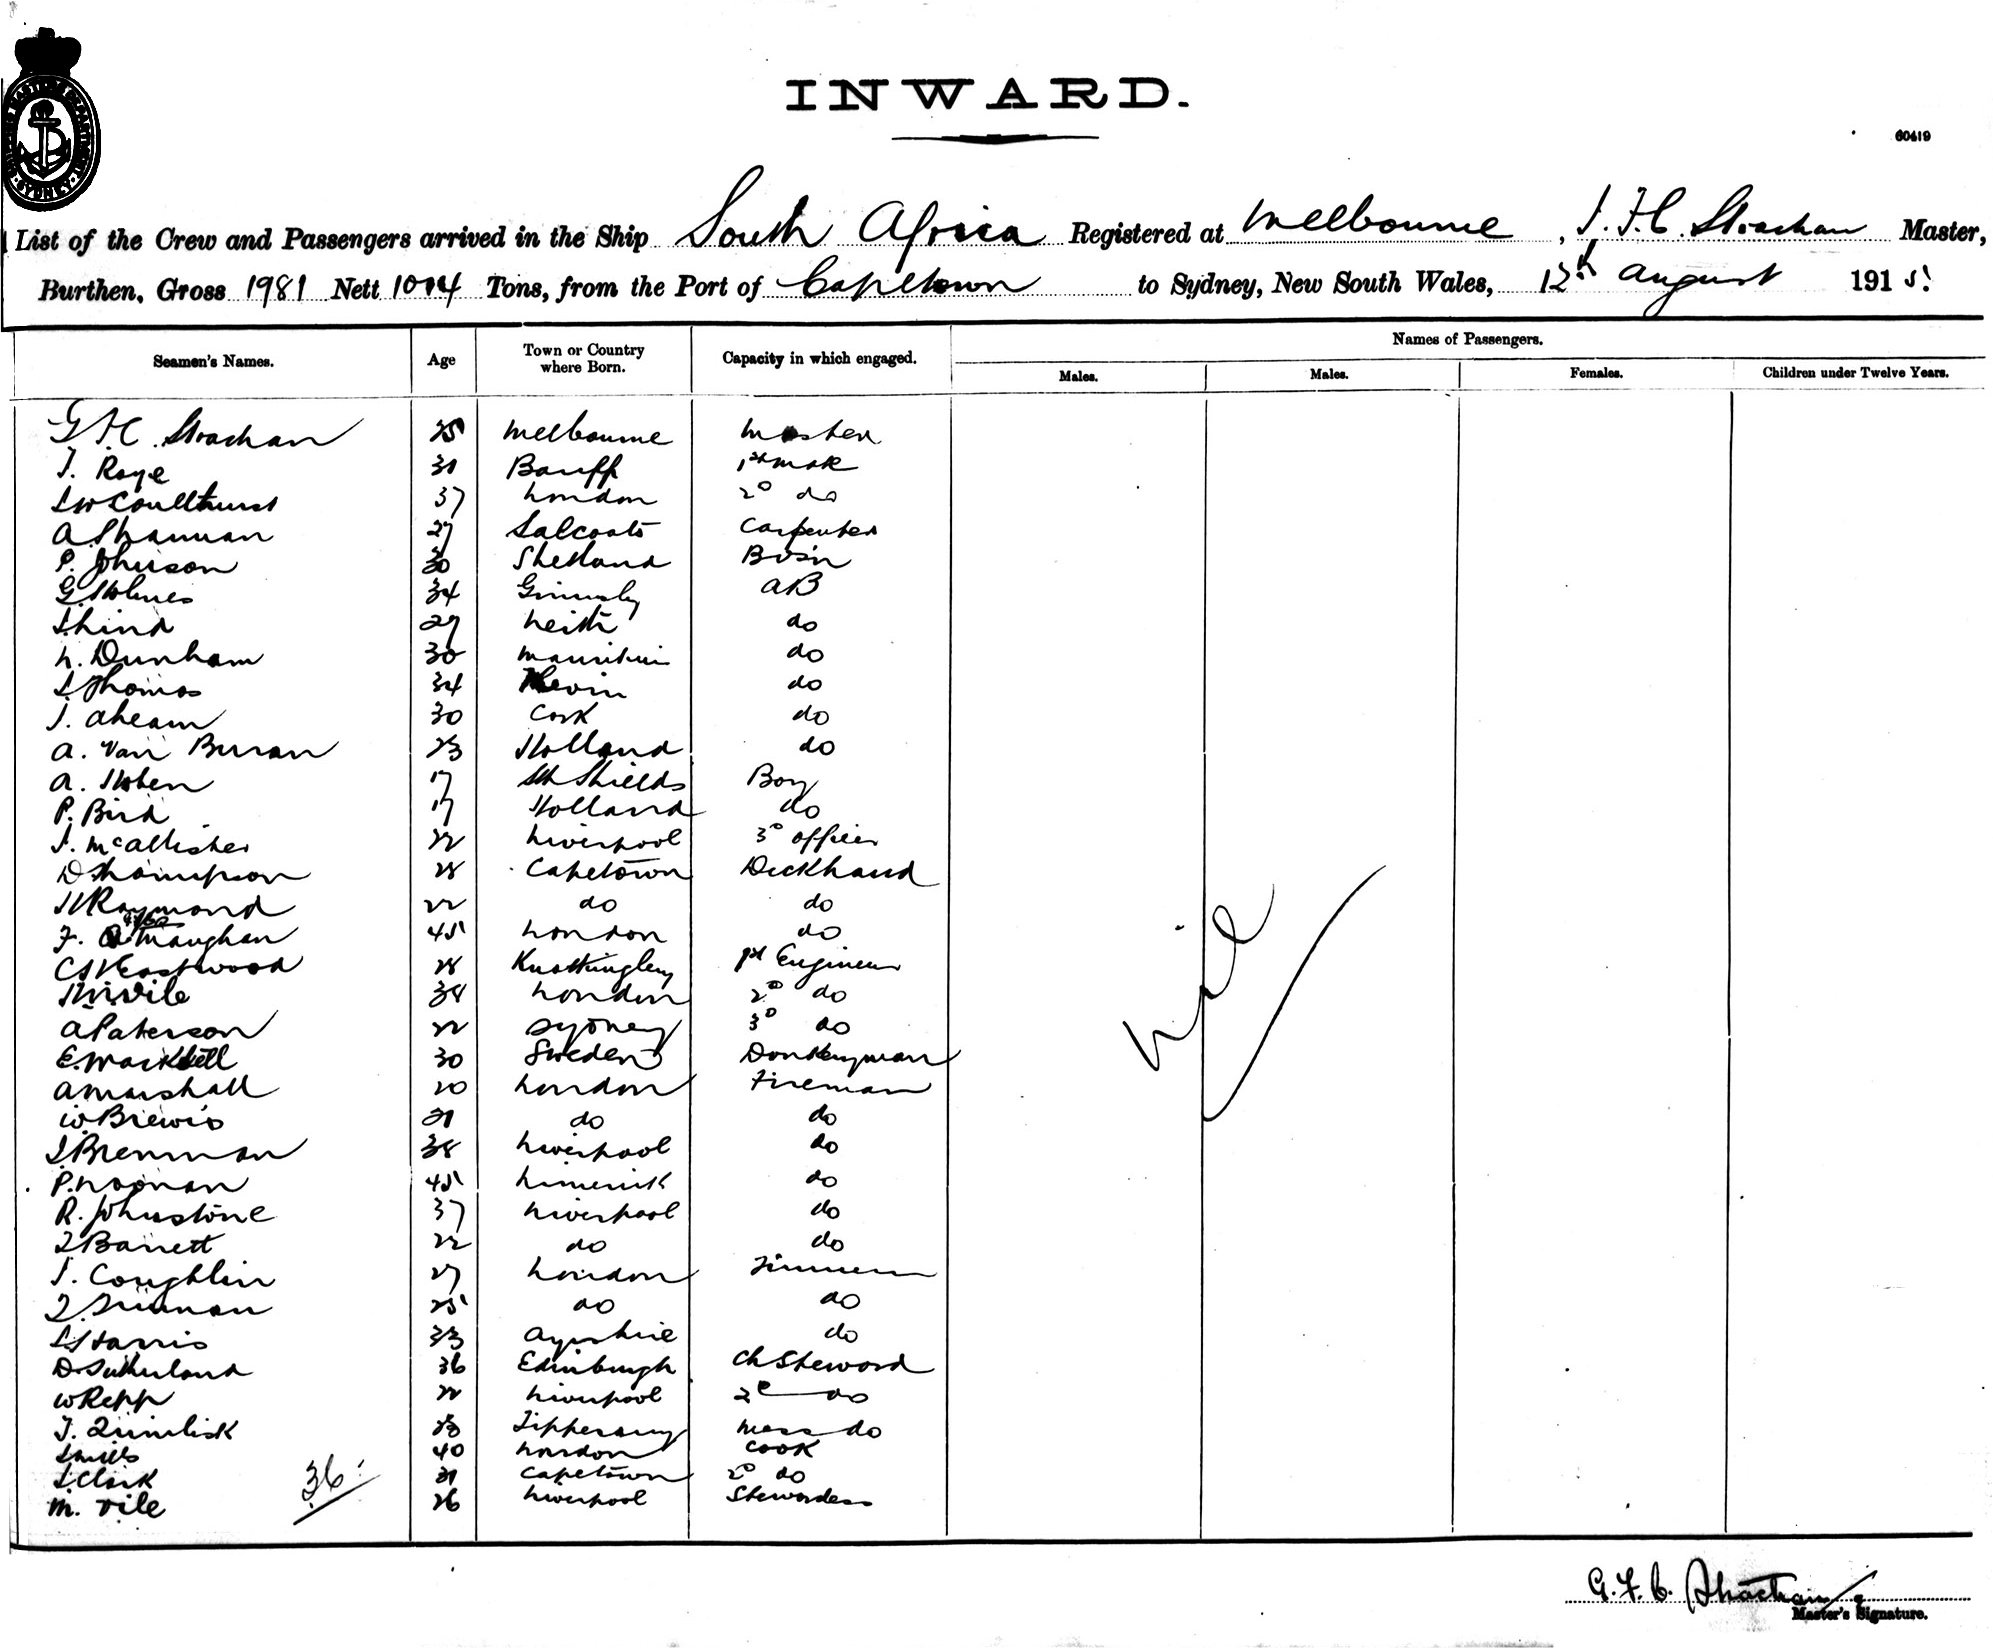 INWARD.
60419
List of the Crew and Passengers arrived in the Ship South Africa Registered at Melbourne, J. F. C. Strachan Master,
Burthen, Gross 1981 Nett 1014 Tons, from the Port of Capetown to Sydney, New South Wales, 12th August 1915.
Seamen's Names. Age Town or Country where Born. Capacity in which engaged. Names of Passengers.
Males. Males. Females. Children under Twelve Years.
G F C. Strachan 25 Melbourne Master
J. Roye 31 Banff 1st Mate
37 London 2° do
A. Shannan 27 Salcoats Carpenter
P. Johnson 30 Shetland Bosn
G. Holmes 34 Grimsby AB
J. Lind 29 Leith do
L. Dunham 30 Mauritius do
J. Thomas 34 do
J. Ahearn 30 Cork do
A. Van Buran 23 Holland do
A. Hoben 17 Sth Shields Boy
P. Bird 17 Holland do
J. McAllister 22 Liverpool 3° Officer
D Thompson 28 Capetown Deckhand
H Raymond 22 do do
F. Maughan 45 London do
C H Eastwood 28 Knottingley 1st Engineer
H. Vile 38 London 2° do
A Paterson 22 Sydney 3° do
E. 30 Sweden Donkeyman
A Marshall 20 London Fireman
W. Brewis 21 do do
J. Brennan 38 Liverpool do
P. Noonan 45 Limerick do
R. Johnstone 37 Liverpool do
J Barrett 22 do do
J. Coughlin 27 London Trimmer
25 do do
J Harris 33 Ayrshire do
D. Sutherland 36 Edinburgh Ch Steward
W Repp 22 Liverpool 2° do
J. Quinlisk 23 Tipperary Mess do
J Mills 40 London Cook
J. Clark 21 Capetown 2° do
M. Vile 26 Liverpool Stewardess
36
Nil
G. F. C. Strachan
Master's Signature.